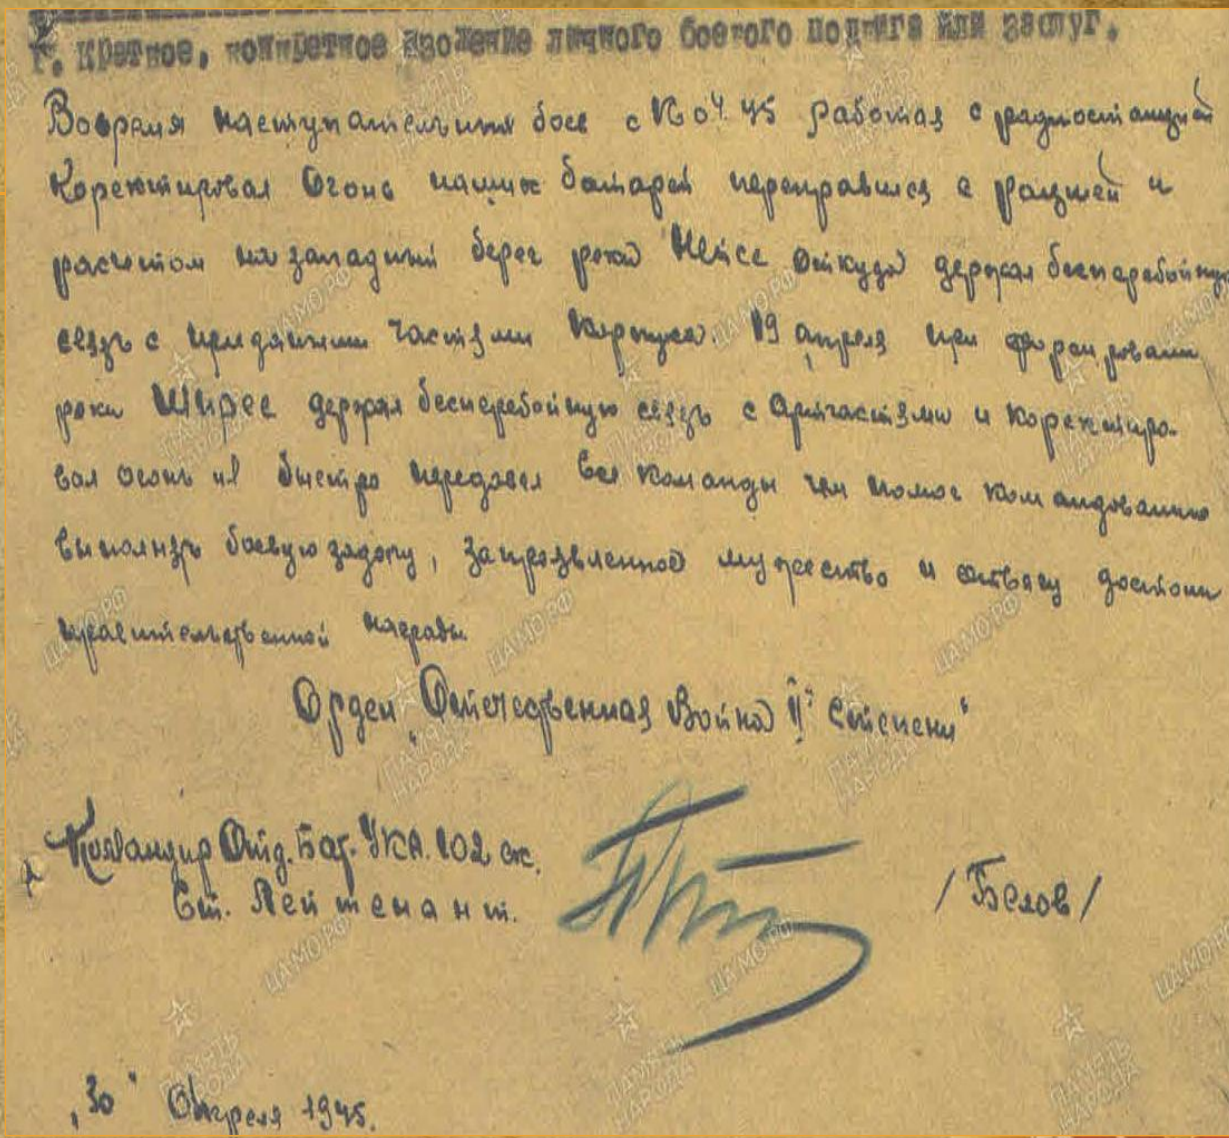 г. Краткое, конкретное изложение личного боевого подвига или заслуг.
Вовремя наступательных боев с 16.04.45 работая с радиостанцией
Коректировал Огонь наших батарей переправился с рацией и
расчетом на западный берег реки Нейсе откуда держал бесперебойную
связь с придаными частями Корпуса. 19 апреля при форсировании
реки Шпрее держал бесперебойную связь с Артчастями и Коректиро-
вал огонь и быстро передавал все команды чем помог командованию
выполнять боевую задачу, за проявленное мужество и отвагу достоин
правительственной награды
Орден „Отечественная Война II" степени"
Командир Отд. Бат. УКА. 102 ск.
Ст. Лейтенант.
/Белов/
„30" Апреля 1945.
ПАМЯТЬ НАРОДА
ЦАМО.РФ